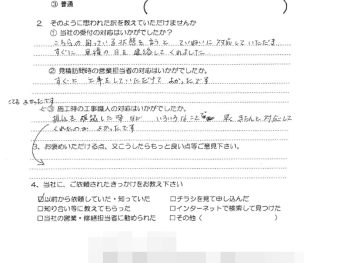 ③ 普通 ( )
2. そのように思われた訳を教えていただけませんか
① 当社の受付の対応はいかがでしたか?
こちらの困っている状態を言うと ていねいに対応していただき
すぐに 見積の日を 連絡してくれました。
② 見積訪問時の営業担当者の対応はいかがでしたか。
すぐに 工事をしていただけて よかったです
③ 施工時の工事職人の対応はいかがでしたか。
よかったです
3. お褒めいただける点、又こうしたらもっと良い点等ご意見下さい。
4. 当社に、ご依頼されたきっかけをお教え下さい
☑以前から依頼していた・知っていた □チラシを見て申し込んだ
□知り合い等に教えてもらった □インターネットで検索して見つけた
□当社の営業・修繕担当者に勧められた □その他 (